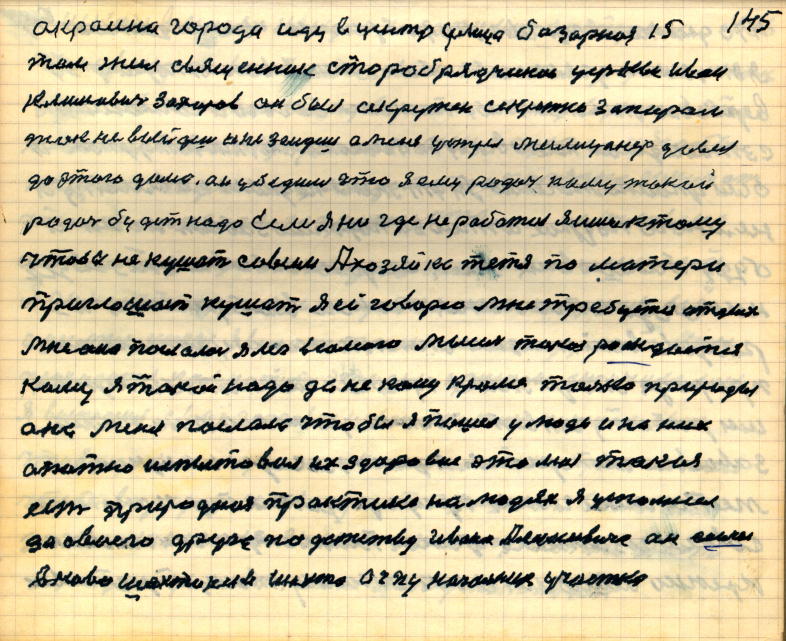 145
окраина города иду в центр улица базарная 15
там жил священник старобрядчиной церквы Иван
Климович Захаров он был секретно запирал
не выйдеш и не зайдиш а меня утрел милицанер довел
до этого дома. он убедил что я ему родач кому такой
родач будет надо Если я ни где не работал я ишшл к тому
чтобы не кушат совсем А хозяйка тетя по матери
приглошает кушат я ей говорю мне требуется отдых
мне она послала я лег в самого мысля такая рождается
кому я такой надо да не кому кроме только природы
она меня послала чтобы я пошел у люде и на них
опытно испытовал их здоровие это мы такая
ест природная практика на людях я успомнил
за своего друга по детству Ивана он
в ново шахтинки шахта ОГПУ началник участка